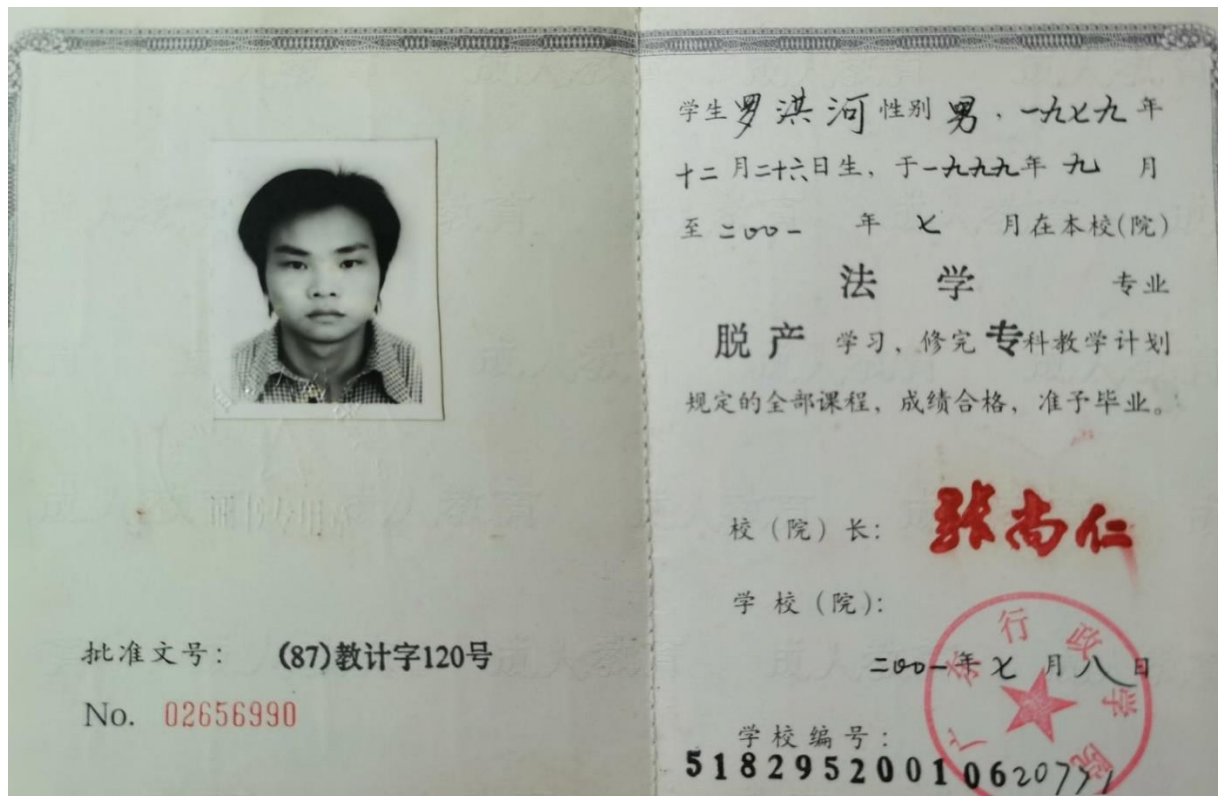 批准文号： (87)教计字120号
No. 02656990
学生罗洪河性别男，一九七九年
十二月二十六日生，于一九九九年九月
至二〇〇一年七月在本校(院)
法学专业
脱产学习，修完专科教学计划
规定的全部课程，成绩合格，准予毕业。
校（院）长： 张尚仁
学校（院）：
广东行政学院
二〇〇一年七月八日
学校编号：
518295200106
成人教育